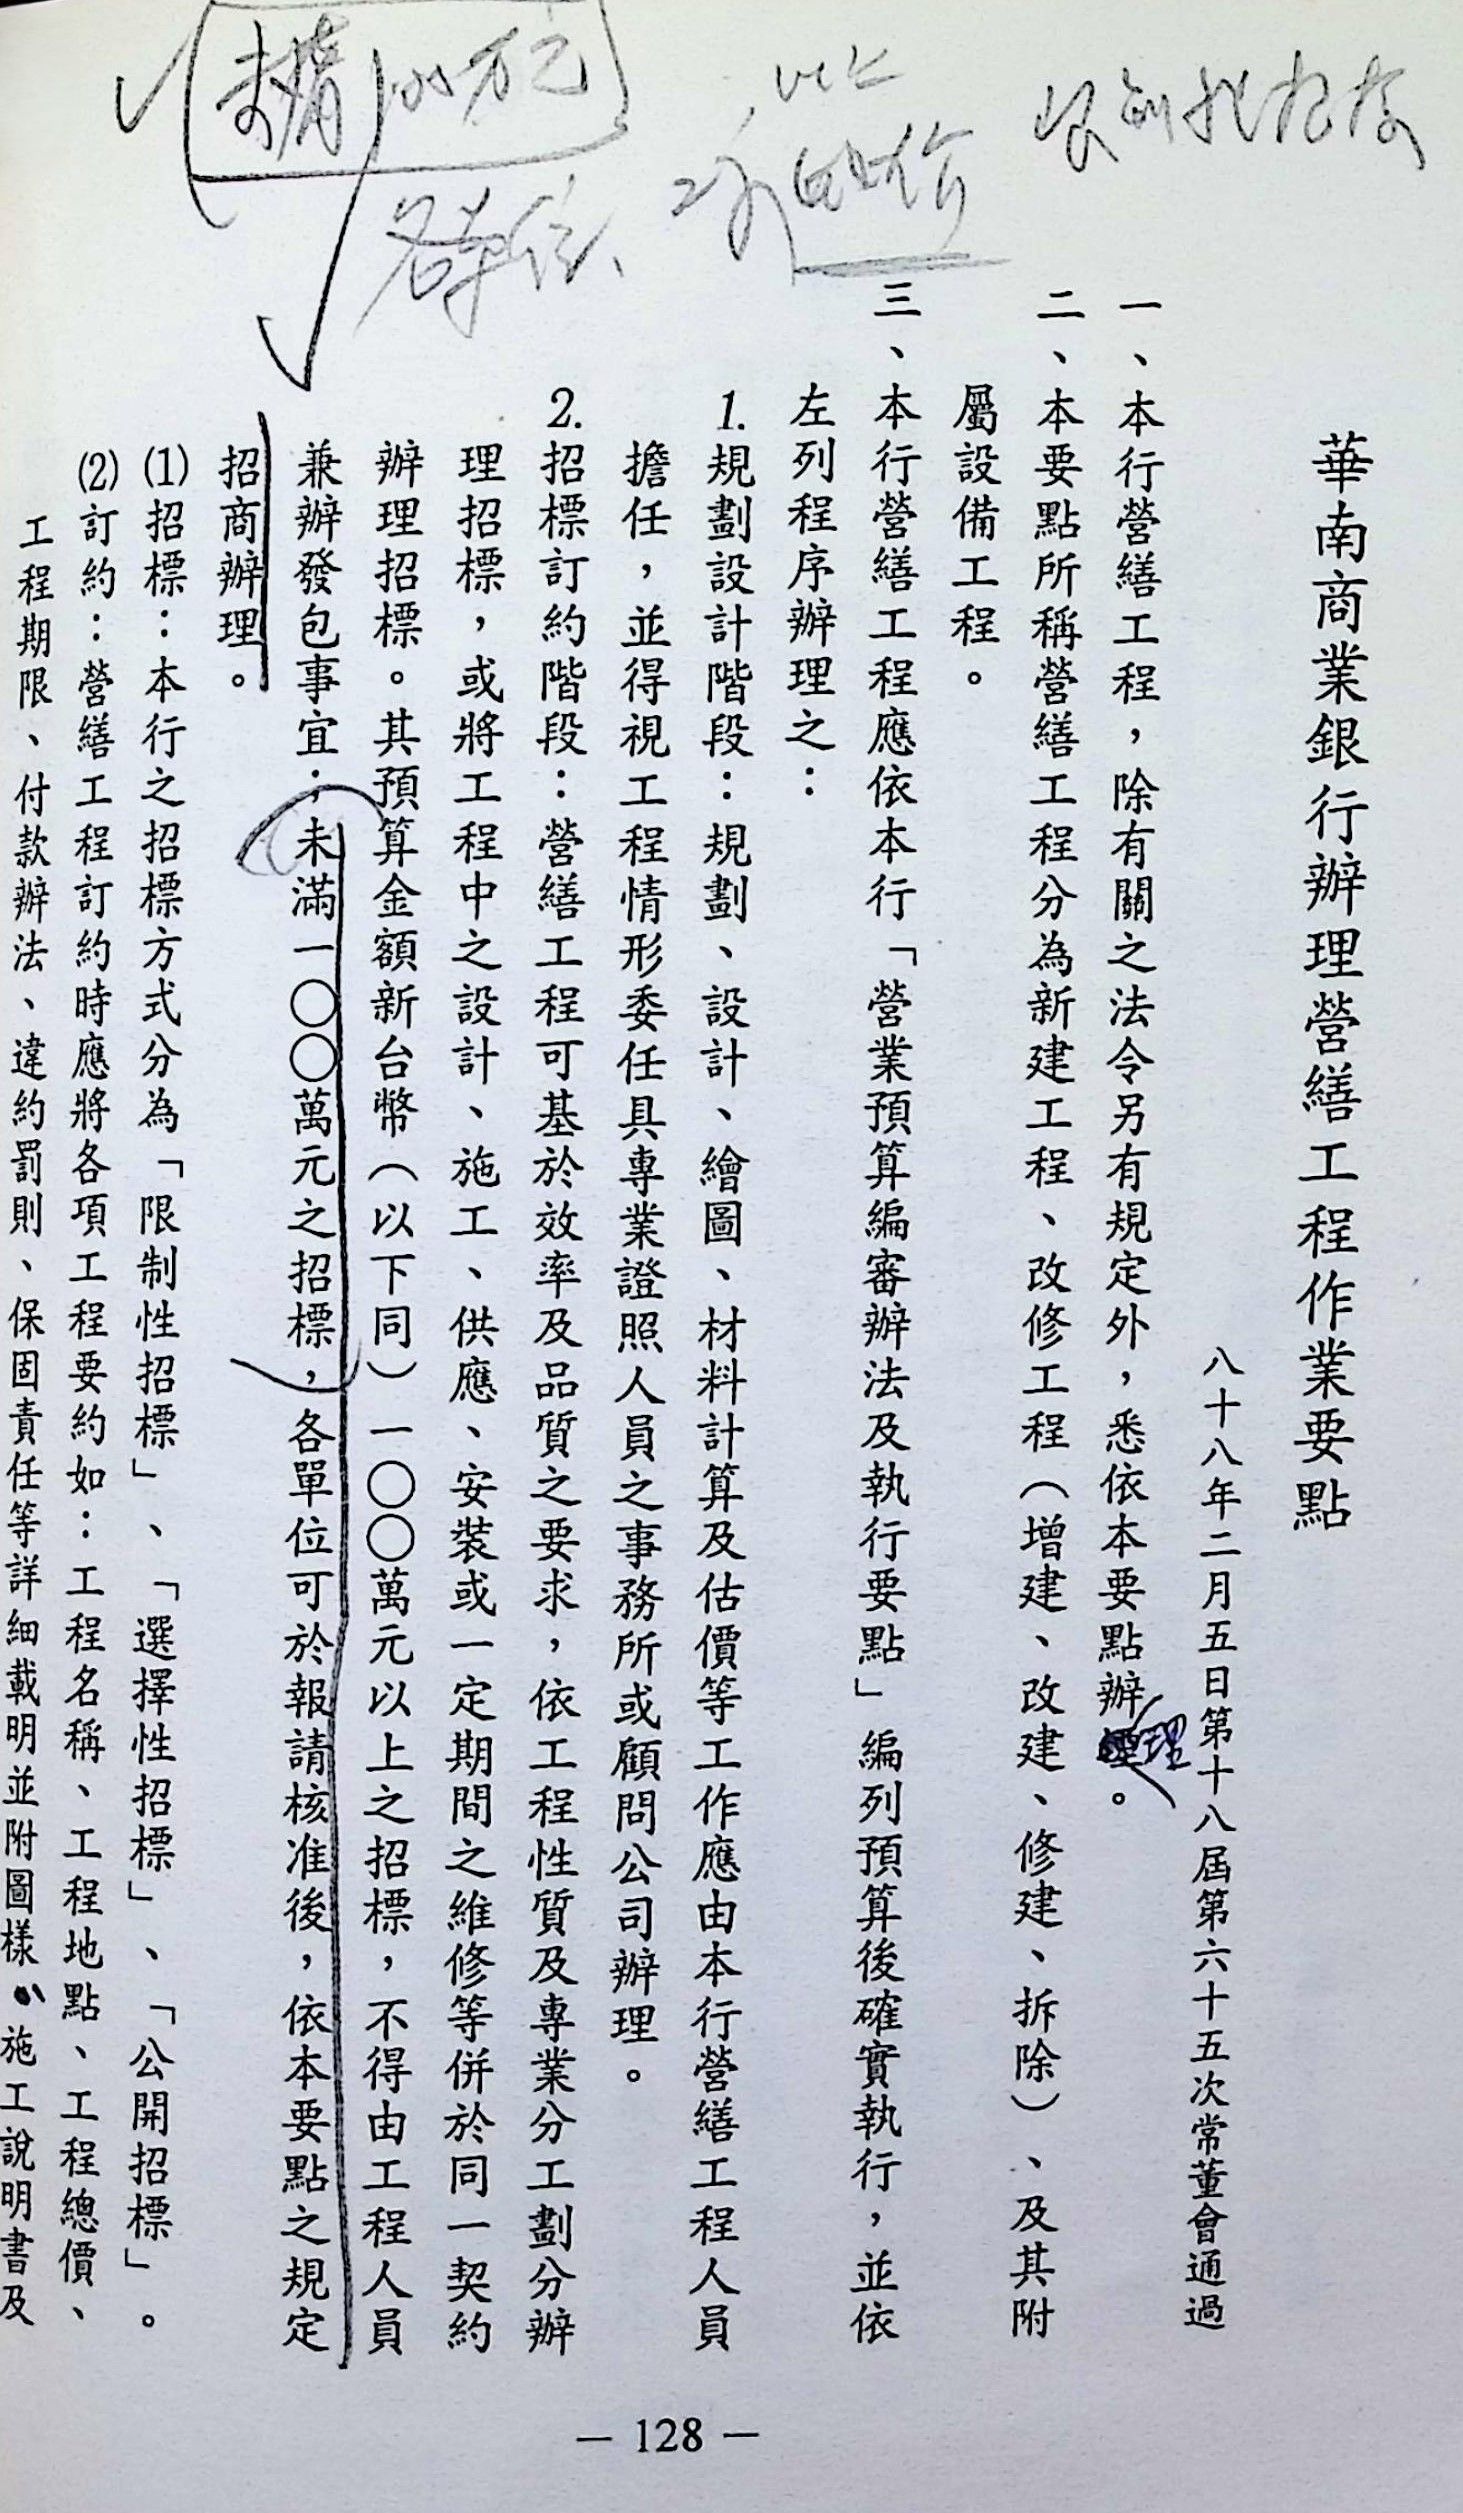 華南商業銀行辦理營繕工程作業要點
八十八年二月五日第十八屆第六十五次常董會通過
一、本行營繕工程，除有關之法令另有規定外，悉依本要點辦理。
二、本要點所稱營繕工程分為新建工程、改修工程（增建、改建、修建、拆除）、及其附
屬設備工程。
三、本行營繕工程應依本行「營業預算編審辦法及執行要點」編列預算後確實執行，並依
左列程序辦理之：
1.規劃設計階段：規劃、設計、繪圖、材料計算及估價等工作應由本行營繕工程人員
擔任，並得視工程情形委任具專業證照人員之事務所或顧問公司辦理。
2.招標訂約階段：營繕工程可基於效率及品質之要求，依工程性質及專業分工劃分辦
理招標，或將工程中之設計、施工、供應、安裝或一定期間之維修等併於同一契約
辦理招標。其預算金額新台幣（以下同）一〇〇萬元以上之招標，不得由工程人員
兼辦發包事宜；未滿一〇〇萬元之招標，各單位可於報請核准後，依本要點之規定
招商辦理。
(1)招標：本行之招標方式分為「限制性招標」、「選擇性招標」、「公開招標」。
(2)訂約：營繕工程訂約時應將各項工程要約如：工程名稱、工程地點、工程總價、
工程期限、付款辦法、違約罰則、保固責任等詳細載明並附圖樣、施工說明書及
各單位
— 128 —